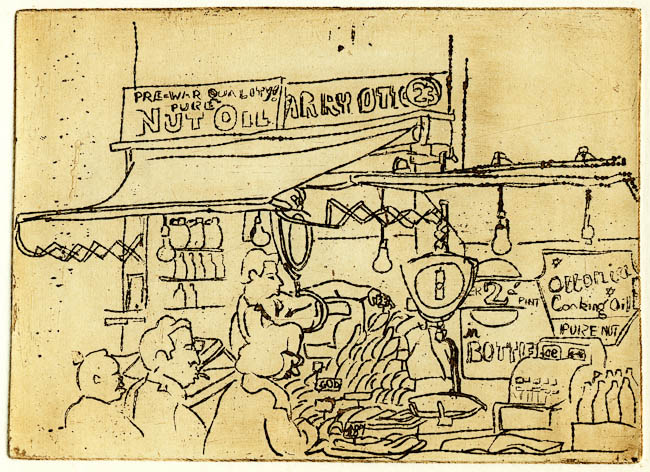 PRE-WAR QUALITY!
PURE
NUT OIL
ARRY OTT
23
2
PINT
IN
BOTTLE
Cooking Oil
PURE NUT
COD